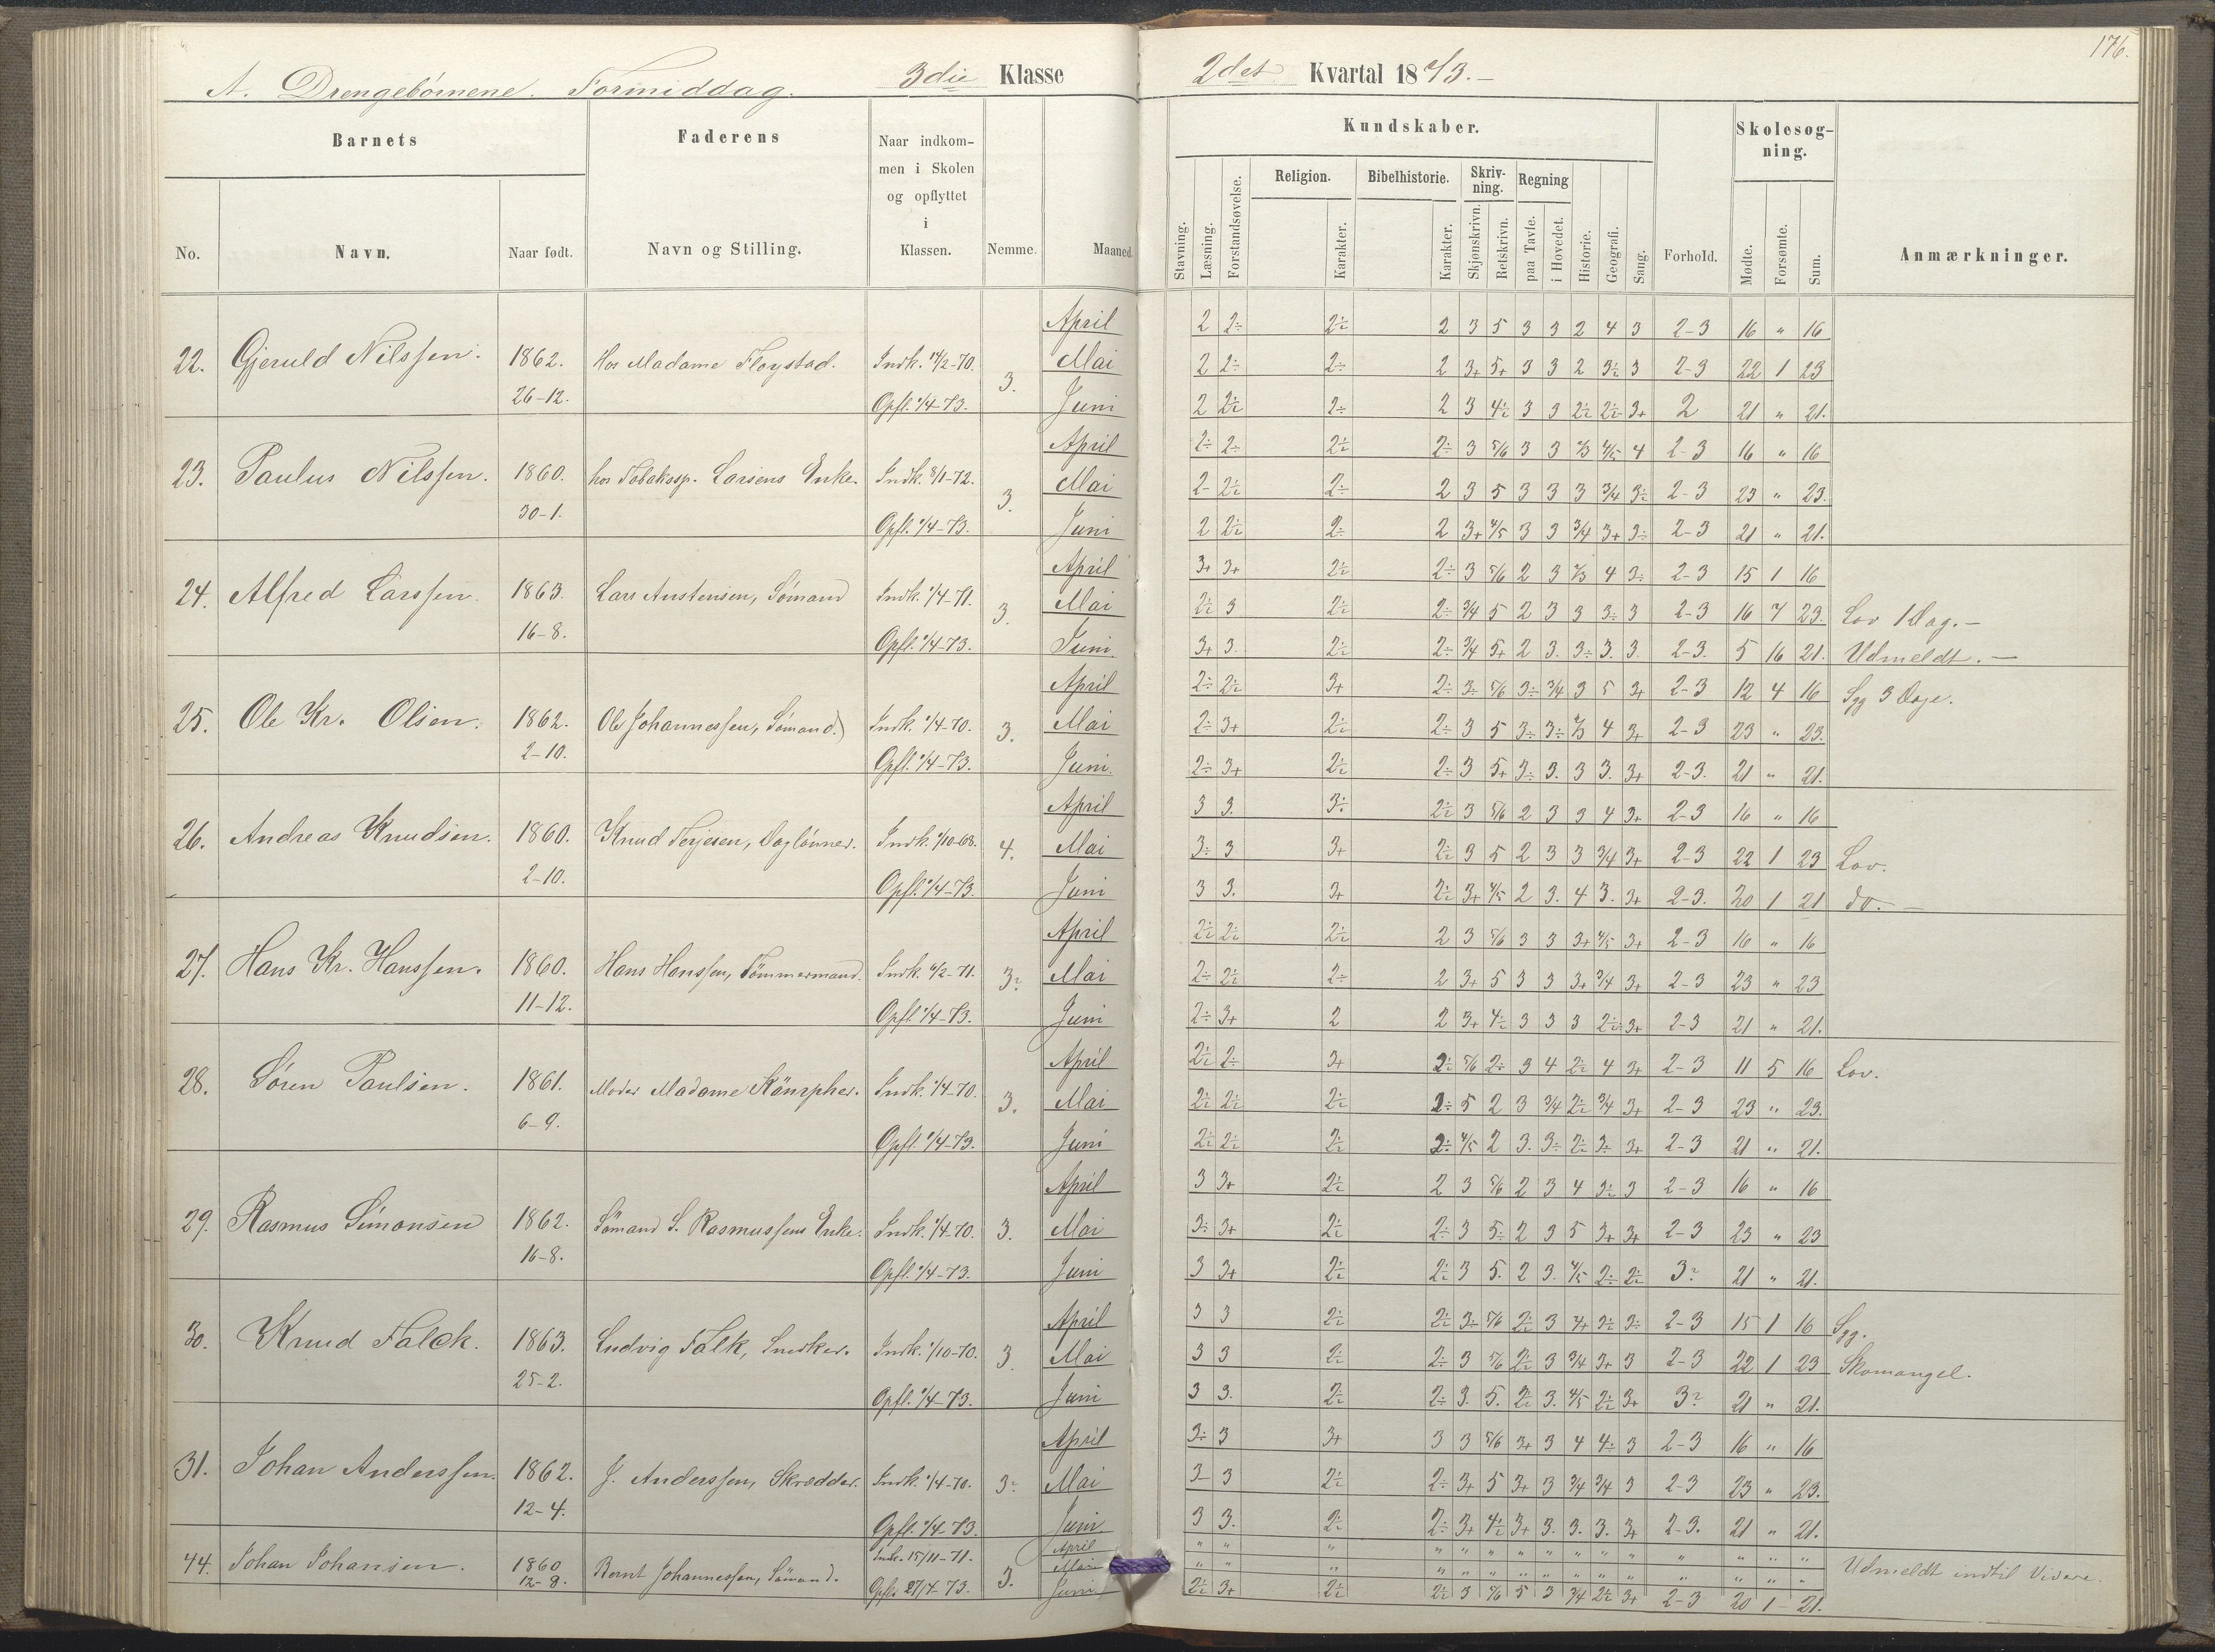 176.
A. Drengebörnene. Formiddag. 3die Klasse 2det Kvartal 1873.-
Barnets Faderens Naar indkommen i Skolen og opflyttet i Klassen. Nemme. Maaned. Kundskaber. Forhold. Skolesogning. Anmærkninger.
No. Navn. Naar født. Navn og Stilling.
Stavning. Læsning. Forstandsøvelse. Religion. Karakter. Bibelhistorie. Karakter. Skrivning. Skjønskrivn. Retskrivn. Regning paa Tavle. i Hovedet. Historie. Geografi. Sang. Mødte. Forsømte. Sum.
April 2 2÷ 2÷ 2 3 5 3 3 2 4 3 2-3 16 " 16
22. Gjeruld Nilssen. 1862. Hos Madame Floystad. Indk. 14/2-70. 3. Mai 2 2÷ 2÷ 2 3+ 5+ 3 3 2 3÷ 3 2-3 22 1 23
26-12. Opfl. 1/4-73. Juni 2 2÷ 2÷ 2 3 4÷ 3 3 2÷ 2÷ 3+ 2 21 " 21.
April 2÷ 2÷ 2÷ 2÷ 3 5/6 3 3 2/3 4/5 4 2-3 16 " 16
23. Paulus Nilssen. 1860. hos Tobaksp. Larsens Enke. Indk. 8/1-72. 3. Mai 2- 2÷ 2÷ 2 3 5 3 3 3 3/4 3÷ 2-3 23 " 23.
30-1. Opfl. 1/4-73. Juni 2 2÷ 2÷ 2 3+ 4/5 3 3 3/4 3+ 3÷ 2-3 21 " 21.
April 3+ 3+ 2÷ 2÷ 3 5/6 2 3 2/3 4 3÷ 2-3 15 1 16
24. Alfred Larssen. 1863. Lars Austensen, Sömand Indk. 1/4-71. 3. Mai 2÷ 3 2÷ 2÷ 3/4 5 2 3 3 3÷ 3 2-3 16 7 23. Lov 1 Dag.-
16-8. Opfl. 1/4-73. Juni 3+ 3. 2÷ 2÷ 3/4 5+ 2 3. 3÷ 3. 3. 2-3. 5 16 21. Udmeldt.-
April 2÷ 2÷ 3+ 2÷ 3÷ 5/6 3÷ 3/4 3 5 3+ 2-3 12 4 16 Syg 3 Dage.
25. Ole Kr. Olsen. 1862. Ole Johannessen, Sömand.) Indk. 1/4-70. 3. Mai 2÷ 3+ 2÷ 2÷ 3 5 3÷ 3÷ 2/3 4 3+ 2-3 23 " 23.
2-10. Opfl. 1/4-73. Juni. 2÷ 3+ 2÷ 2÷ 3 5+ 3÷ 3. 3 3. 3+ 2-3. 21 " 21.
April 3 3. 3÷ 2÷ 3 5/6 2 3 3 4 3+ 2-3 16 " 16
26. Andreas Knudsen. 1860. Knud Terjesen, Daglönner. Indk. 1/10-68. 4. Mai 3÷ 3 3+ 2÷ 3 5 2 3 3 3/4 3+ 2-3 22 1 23 Lov.
2-10. Opfl. 1/4-73. Juni 3 3. 3+ 2÷ 3+ 4/5 2 3. 4 3. 3+ 2-3. 20 1 21 do.-
April 2÷ 2÷ 2÷ 2 3 5/6 3 3 3+ 4/5 3+ 2-3 16 " 16
27. Hans Kr. Hanssen. 1860. Hans Hanssen, Tömmermand. Indk. 4/2-71. 3? Mai 2÷ 2÷ 2÷ 2 3+ 5 3 3 3+ 3/4 3+ 2-3 23 " 23
11-12. Opfl. 1/4-73. Juni 2÷ 3+ 2 2 3+ 4÷ 3 3 3 2÷ 3+ 2-3 21 " 21.
April 2÷ 2÷ 3+ 2÷ 5/6 2÷ 3 4 2÷ 4 3+ 2-3 11 5 16 Lov.
28. Sören Paulsen. 1861. Moder Madame Kämpher. Indk. 1/4-70. 3. Mai 2÷ 2÷ 2÷ 2÷ 5 2 3 3/4 2÷ 3/4 3+ 2-3 23 " 23.
6-9. Opfl. 1/4-73. Juni 2÷ 2÷ 2÷ 2÷ 4/5 2 3. 3÷ 2÷ 3÷ 3+ 2-3 21 " 21.
April 3 3+ 2÷ 2 3 5/6 2 3 4 3÷ 3 2-3 16 " 16
29. Rasmus Simonsen 1862. Sömand S. Rasmussens Enke. Indk. 1/4-70. 3. Mai 3÷ 3+ 2÷ 2÷ 3 5÷ 2 3 5 3+ 3+ 2-3 23 " 23
16-8. Opfl. 1/4-73. Juni 3 3+ 2÷ 2÷ 3 5. 2 3. 4/5 2÷ 2÷ 3? 21 " 21.
April 3 3 2÷ 2÷ 3÷ 5/6 2÷ 3 4+ 3÷ 3÷ 2-3 15 1 16 Syg.
30. Knud Falck. 1863. Ludvig Falk, Snedker. Indk. 1/10-70. 3. Mai 3 3 2÷ 2÷ 3 5/6 2÷ 3 3/4 3+ 3 2-3 22 1 23 Skomangel.
25-2. Opfl. 1/4-73. Juni 3 3. 2÷ 2÷ 3. 5. 2÷ 3. 4/5 2÷ 3+ 3? 21 " 21.
April 3÷ 3 3+ 3 3 5/6 3+ 3 4 4÷ 3 2-3 16 " 16
31. Johan Anderssen. 1862. J. Anderssen, Skrædder. Indk. 1/4-70. 3? Mai 3 3 2÷ 2÷ 3+ 5 3+ 3 3/4 3/4 3 2-3 23 " 23.
12-4. Opfl. 1/4-73. Juni. 3 3. 2÷ 2÷ 3+ 4÷ 3+ 3. 3. 3. 3+ 2-3. 21 " 21.
Indk. 15/11-71. April " " " " " " " " " " " " " " "
44. Johan Johansen. 1860 Bernt Johannessen, Sömand. 3. Mai " " " " " " " " " " " " " " " Udmeldt indtil Videre.
12-8. Opfl. 27/4-73. Juni 2÷ 3+ 2÷ 2÷ 3 5/6 5 3 3/4 2÷ 3+ 2-3 20 1 21.